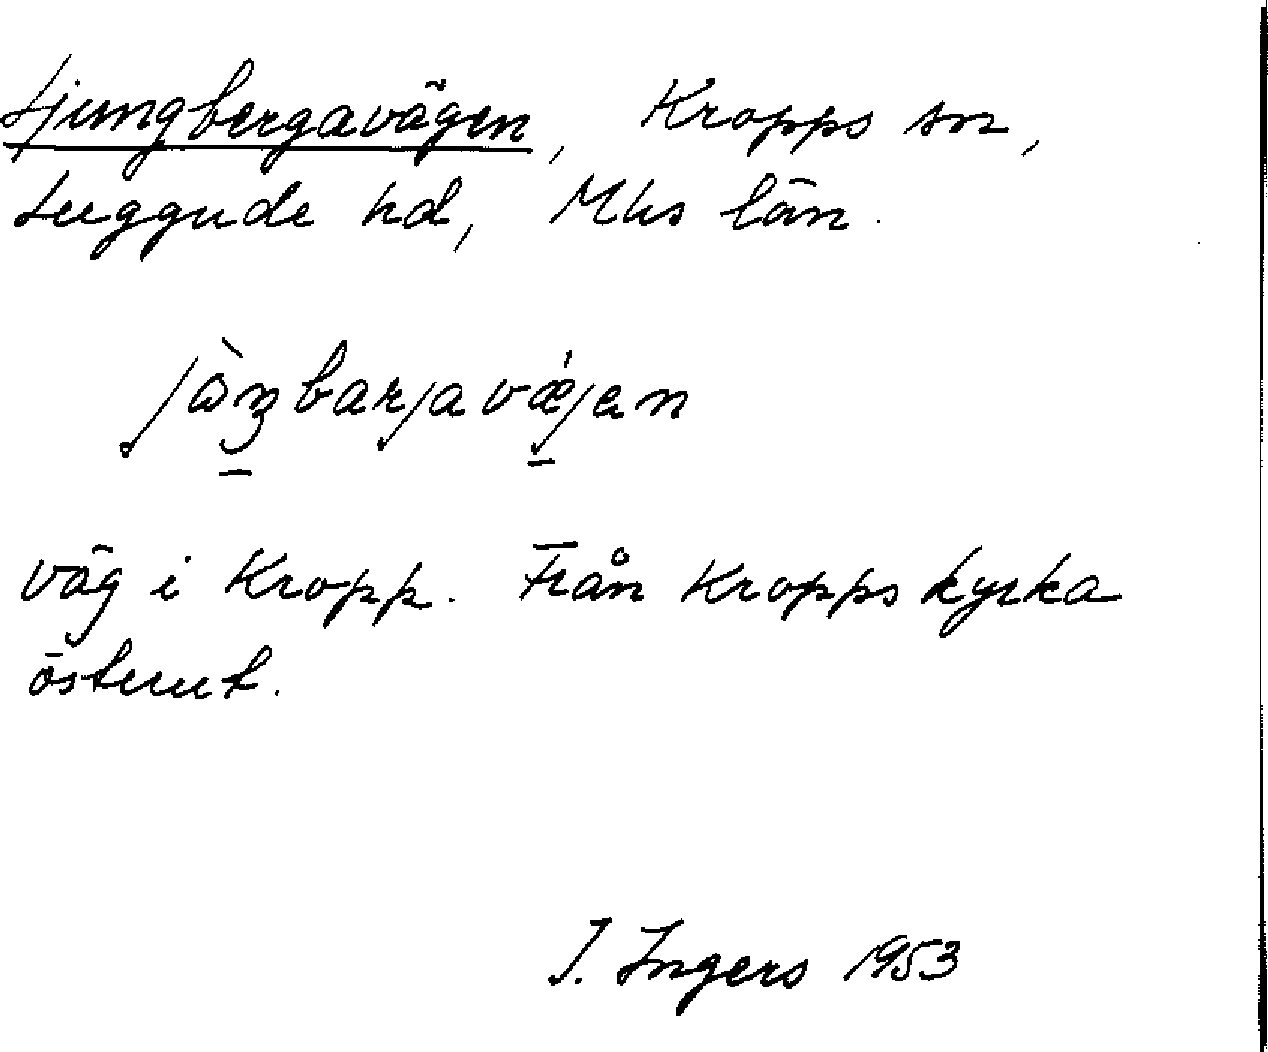 Ljungbergavägen, Kropps sn,
Luggude hd, Mhs län.
jòŋbarjavæ̀jen
väg i Kropp. Från Kropps kyrka
österut.
I. Ingers 1953